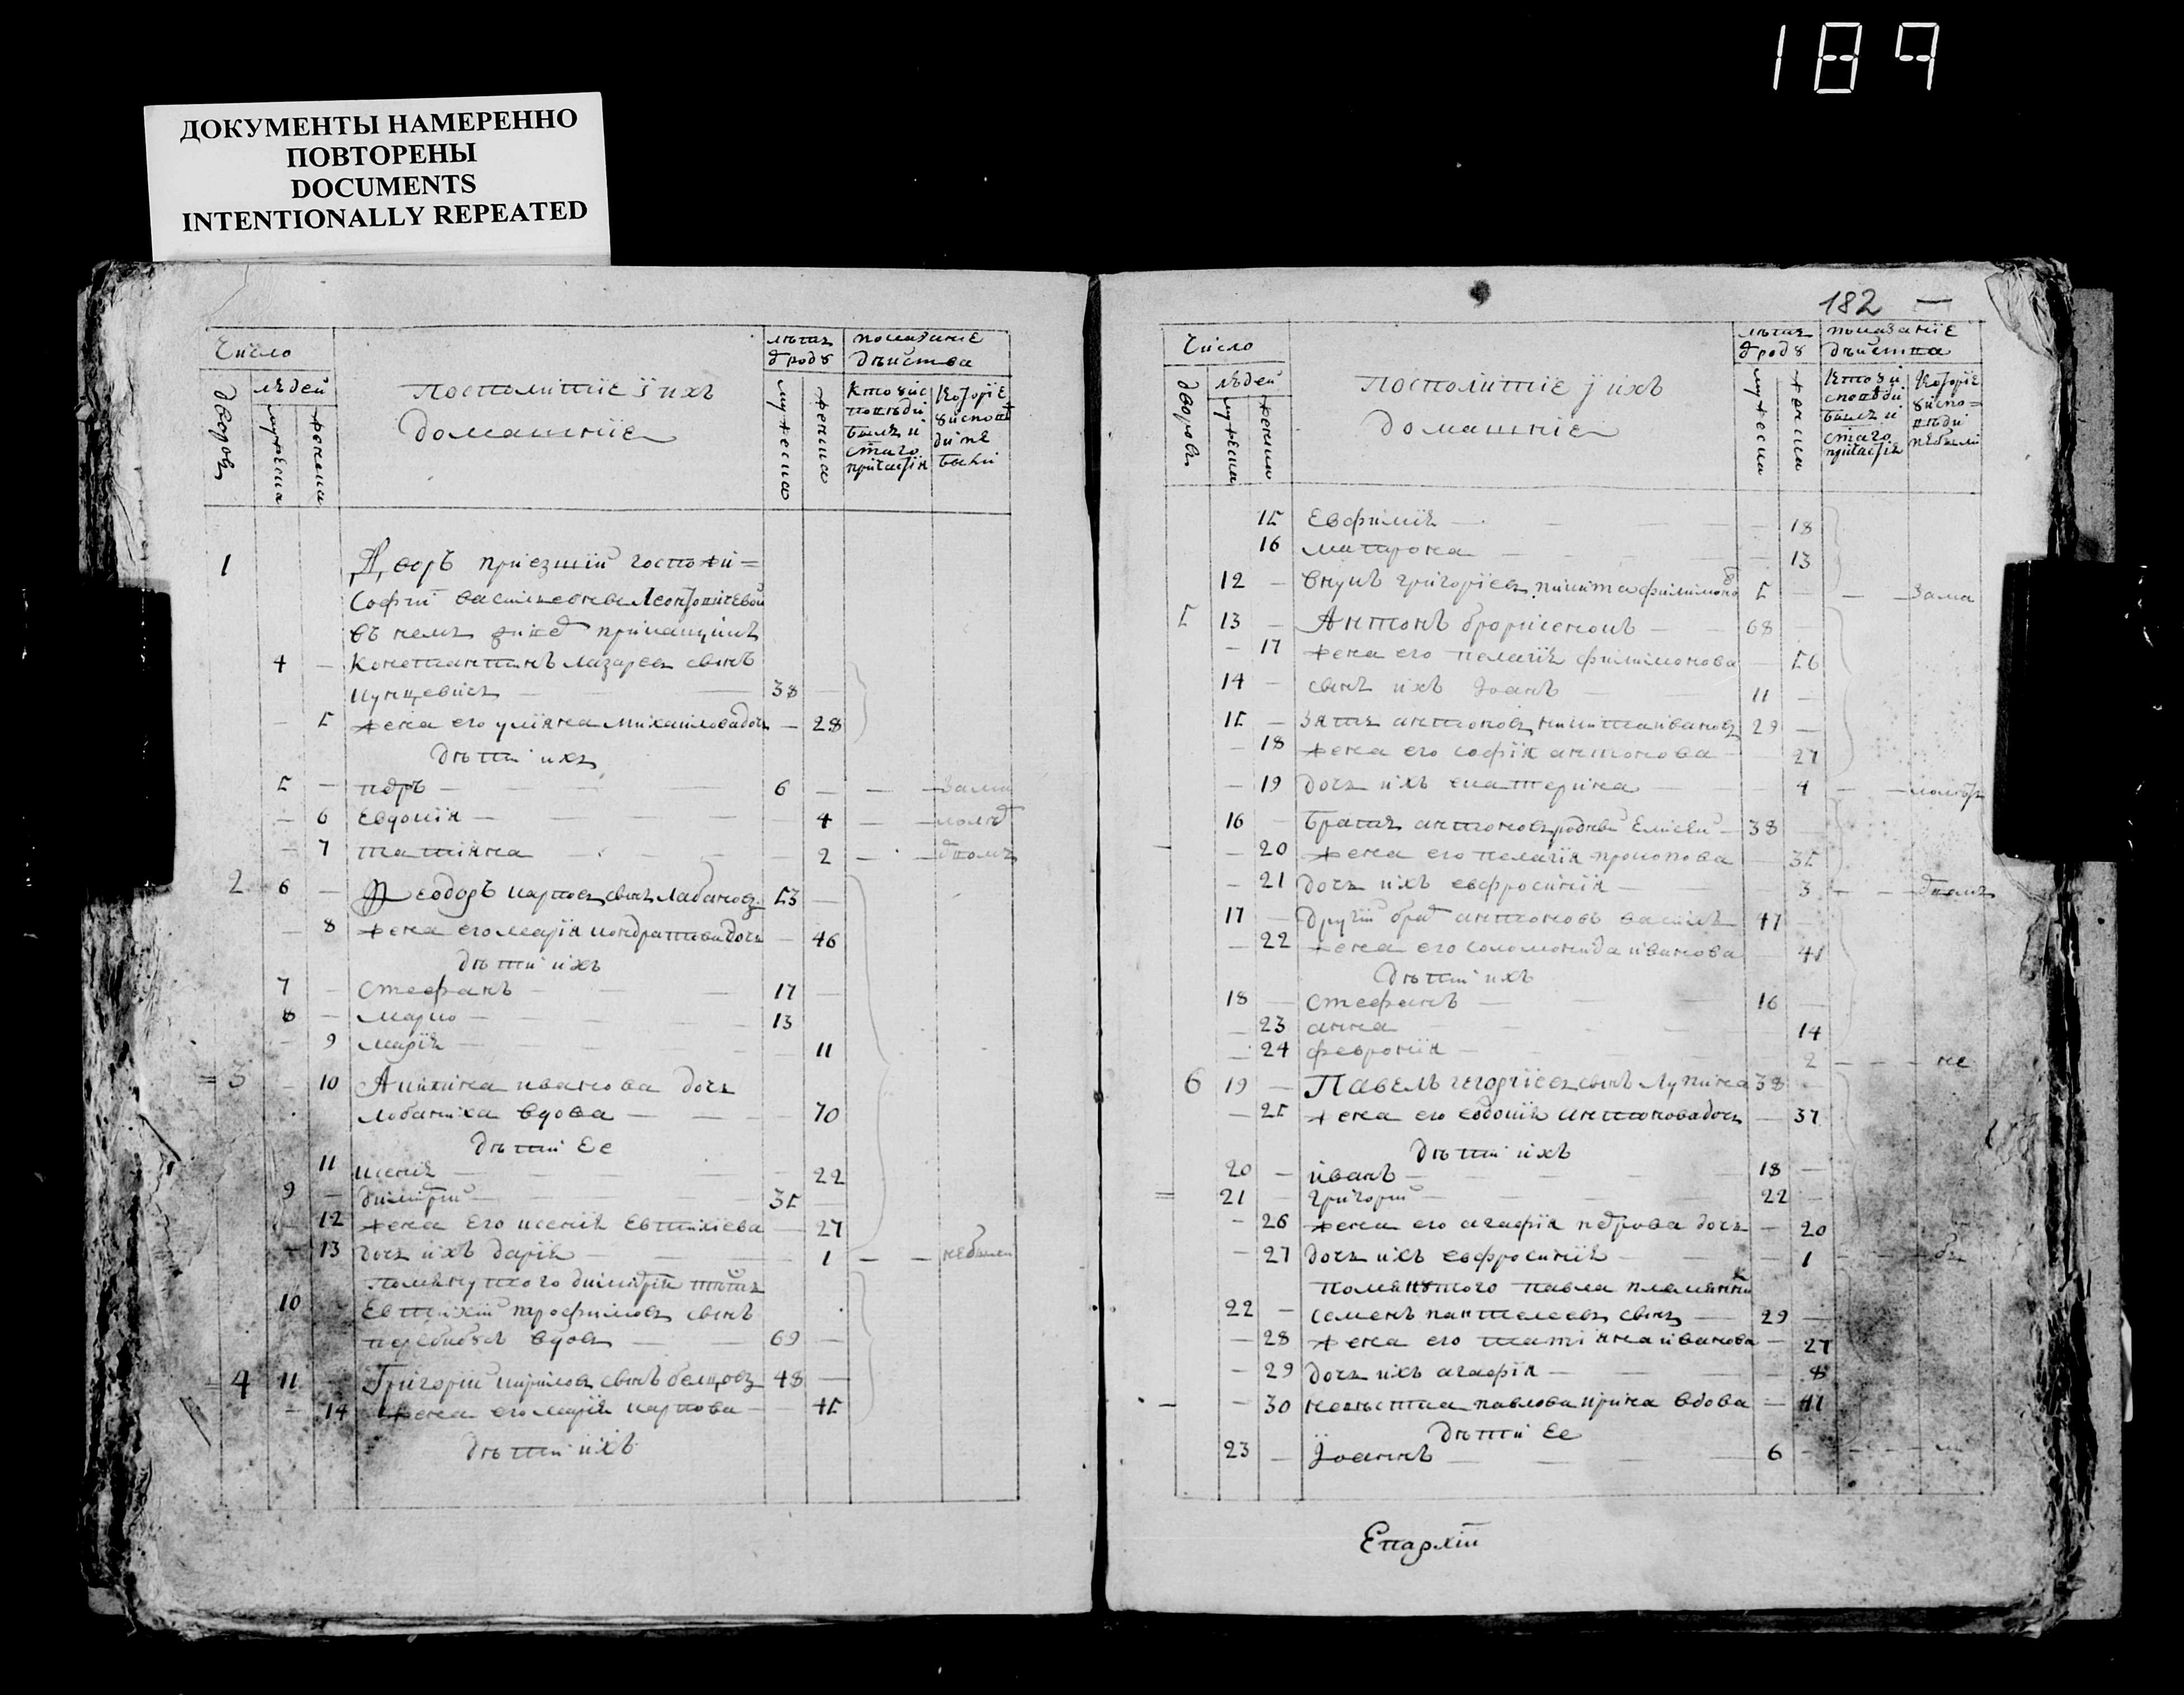 189
ДОКУМЕНТЫ НАМЕРЕННО
ПОВТОРЕНЫ
DOCUMENTS
INTENTIONALLY REPEATED
Число
людей
дворовъ
мужеска
женска
посполитіе и ихъ
домашніе
лѣта
ѿ роду
мужеска
женска
показаніе
дѣйства
кто у ис
повѣди
былъ и
стаго
причастія
которіе
у исповѣ
ди не
были
1 Дворъ приезшій госпожи
Софіи васильевны Леонтовичевой
въ немъ живет прикащикъ
4 — Константинъ лазаревъ сынъ
кунцевичъ — 38 —
— 5 жена его улияна михаилова дочь — 28
дѣти ихъ
5 — петръ — 6 — — — за ма
— 6 Евдокія — 4 — — лолѣт
— 7 татіяна — 2 — — ством
2 6 — Ѳеодоръ карповъ сынъ лабановъ 53 —
— 8 жена его марія кондратова дочь — 46
дѣти ихъ
7 — стефанъ — 17 —
8 — марко — 13
— 9 марія — 11
3 — 10 Акилина иванова дочь
лобаниха вдова — 70
дѣти Ее
11 ксенія — 22
9 — димитрій — 35 —
— 12 жена Его ксенія Евтихіева — 27
— 13 дочь ихъ дарія — 1 — — не были
помянутого димитрія тесть
10 Евтихій трофимовъ сынъ
вдовъ — 69 —
4 11 — Григорій кириловъ сынъ 48 —
— 14 жена его марія карпова — 45
дѣти ихъ
182
Число
людей
дворовъ
мужеска
женска
посполитіе и ихъ
домашніе
лѣта
ѿ роду
мужеска
женска
показаніе
дѣйства
кто у и
сповѣди
былъ и
стаго
причастія
которіе
у испо
вѣди
не были
15 Евфимія — 18
16 матрона — 13
12 — внукъ григоріевъ никита филимонов 5 — — — за ма
5 13 — Антонъ 68 —
— 17 жена его пелагія филимонова — 56
14 — сынъ ихъ Іоанъ — 11 —
15 — зять антоновъ никита ивановъ 29 —
— 18 жена его софія антонова — 27
— 19 дочь ихъ екатерина — 4 — — лолѣт
16 — братъ антоновъ родный Елисѣй — 38
— 20 жена его пелагія прокопова — 35
— 21 дочь ихъ евфросинія — 3 — — ством
17 — другій брат антоновъ василь 47
— 22 жена его соломонида иванова — 41
дѣти ихъ
18 — стефанъ — 16 —
— 23 анна — 14
— 24 февронія — 2 — — — не
6 19 — Павелъ георгіевъ сынъ лупика 38 —
— 25 жена его евдокія антонова дочь — 37
дѣти ихъ
20 — иванъ — 18 —
21 — григорій — 22 —
— 26 жена его агафія петрова дочь — 20
— 27 дочь ихъ евфросинія — 1 — — бы
помянутого павла племянник
22 — семенъ пантелеевъ сынъ — 29 —
— 28 жена его татіяна иванова — 27
— 29 дочь ихъ агафія — 8
— 30 невѣстка павлова ирина вдова — 41
дѣти Ее
23 — Іоаннъ — 6 — — — ли
Епархіи